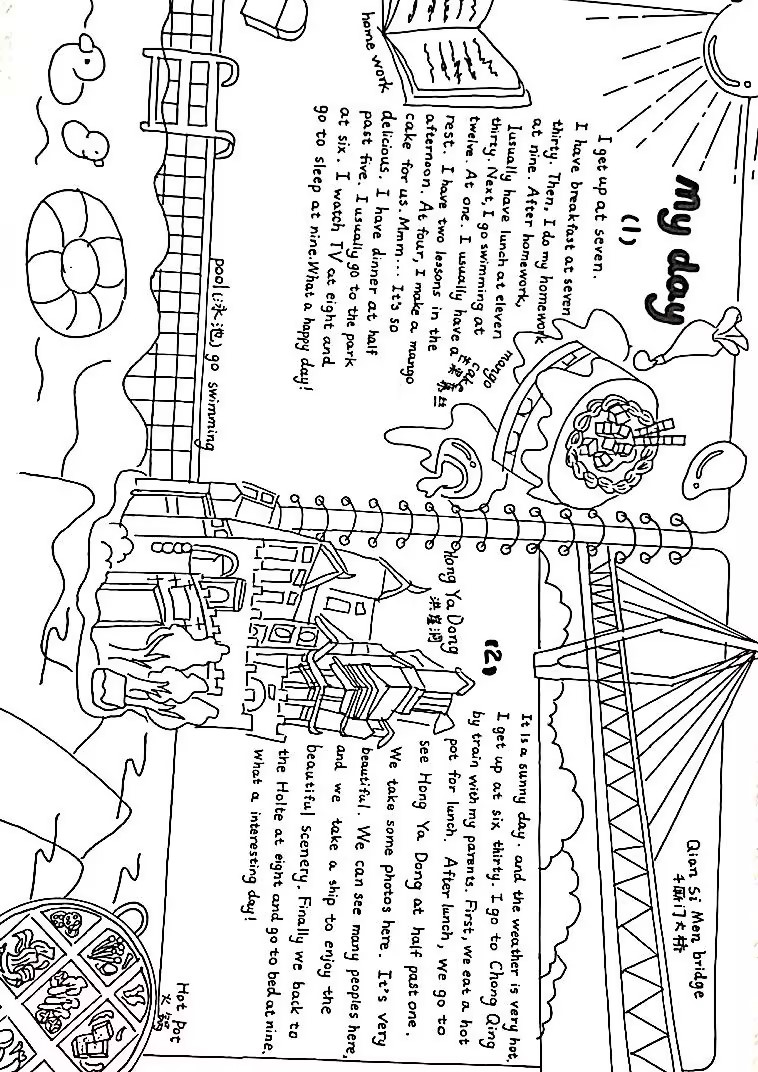 my day
(1)
I get up at seven.
I have breakfast at seven
thirty. Then, I do my homework
at nine. After homework,
I usually have lunch at eleven
thirty. Next, I go swimming at
twelve. At one. I usually have a
rest. I have two lessons in the
afternoon. At four, I make a mango
cake for us. Mmm... It's so
delicious. I have dinner at half
past five. I usually go to the park
at six. I watch TV at eight and
go to sleep at nine. What a happy day!
home work
mango
cake
pool(泳池) go swimming
Hong Ya Dong
洪崖洞
(2)
It is a sunny day. and the weather is very hot.
I get up at six thirty. I go to Chong Qing
by train with my parents. First, we eat a hot
pot for lunch. After lunch, we go to
see Hong Ya Dong at half past one.
We take some photos here. It's very
beautiful. We can see many peoples here,
and we take a ship to enjoy the
beautiful scenery. Finally we back to
the Holte at eight and go to bed at nine.
What a interesting day!
Qian Si Men bridge
千厮门大桥
Hot Pot
火锅